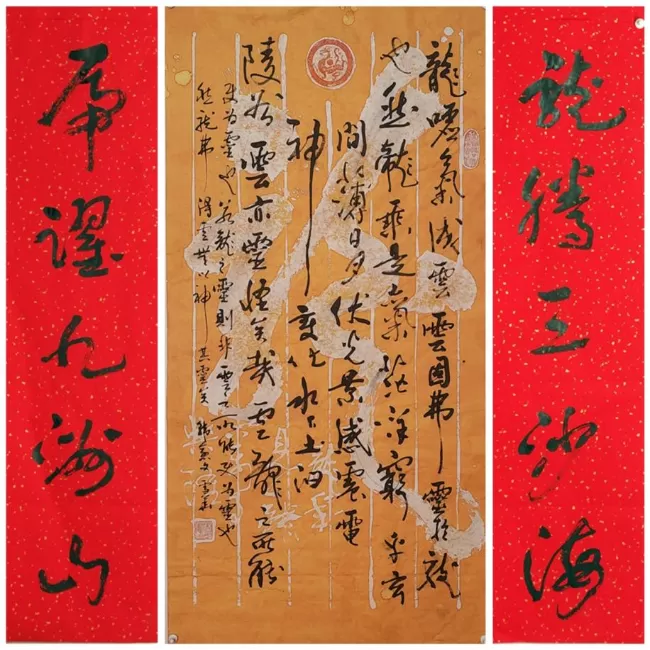 龍騰三沙海
龍噓氣成雲雲固弗靈於龍
也然龍乘是氣茫洋窮乎玄
間薄日月伏光景感震電
神變化水下土汩
陵谷雲亦靈怪矣哉雲龍之所能
使為靈也若龍之靈則非雲之所能使為靈也
然龍弗得雲無以神其靈矣韓愈文
虎躍九洲山